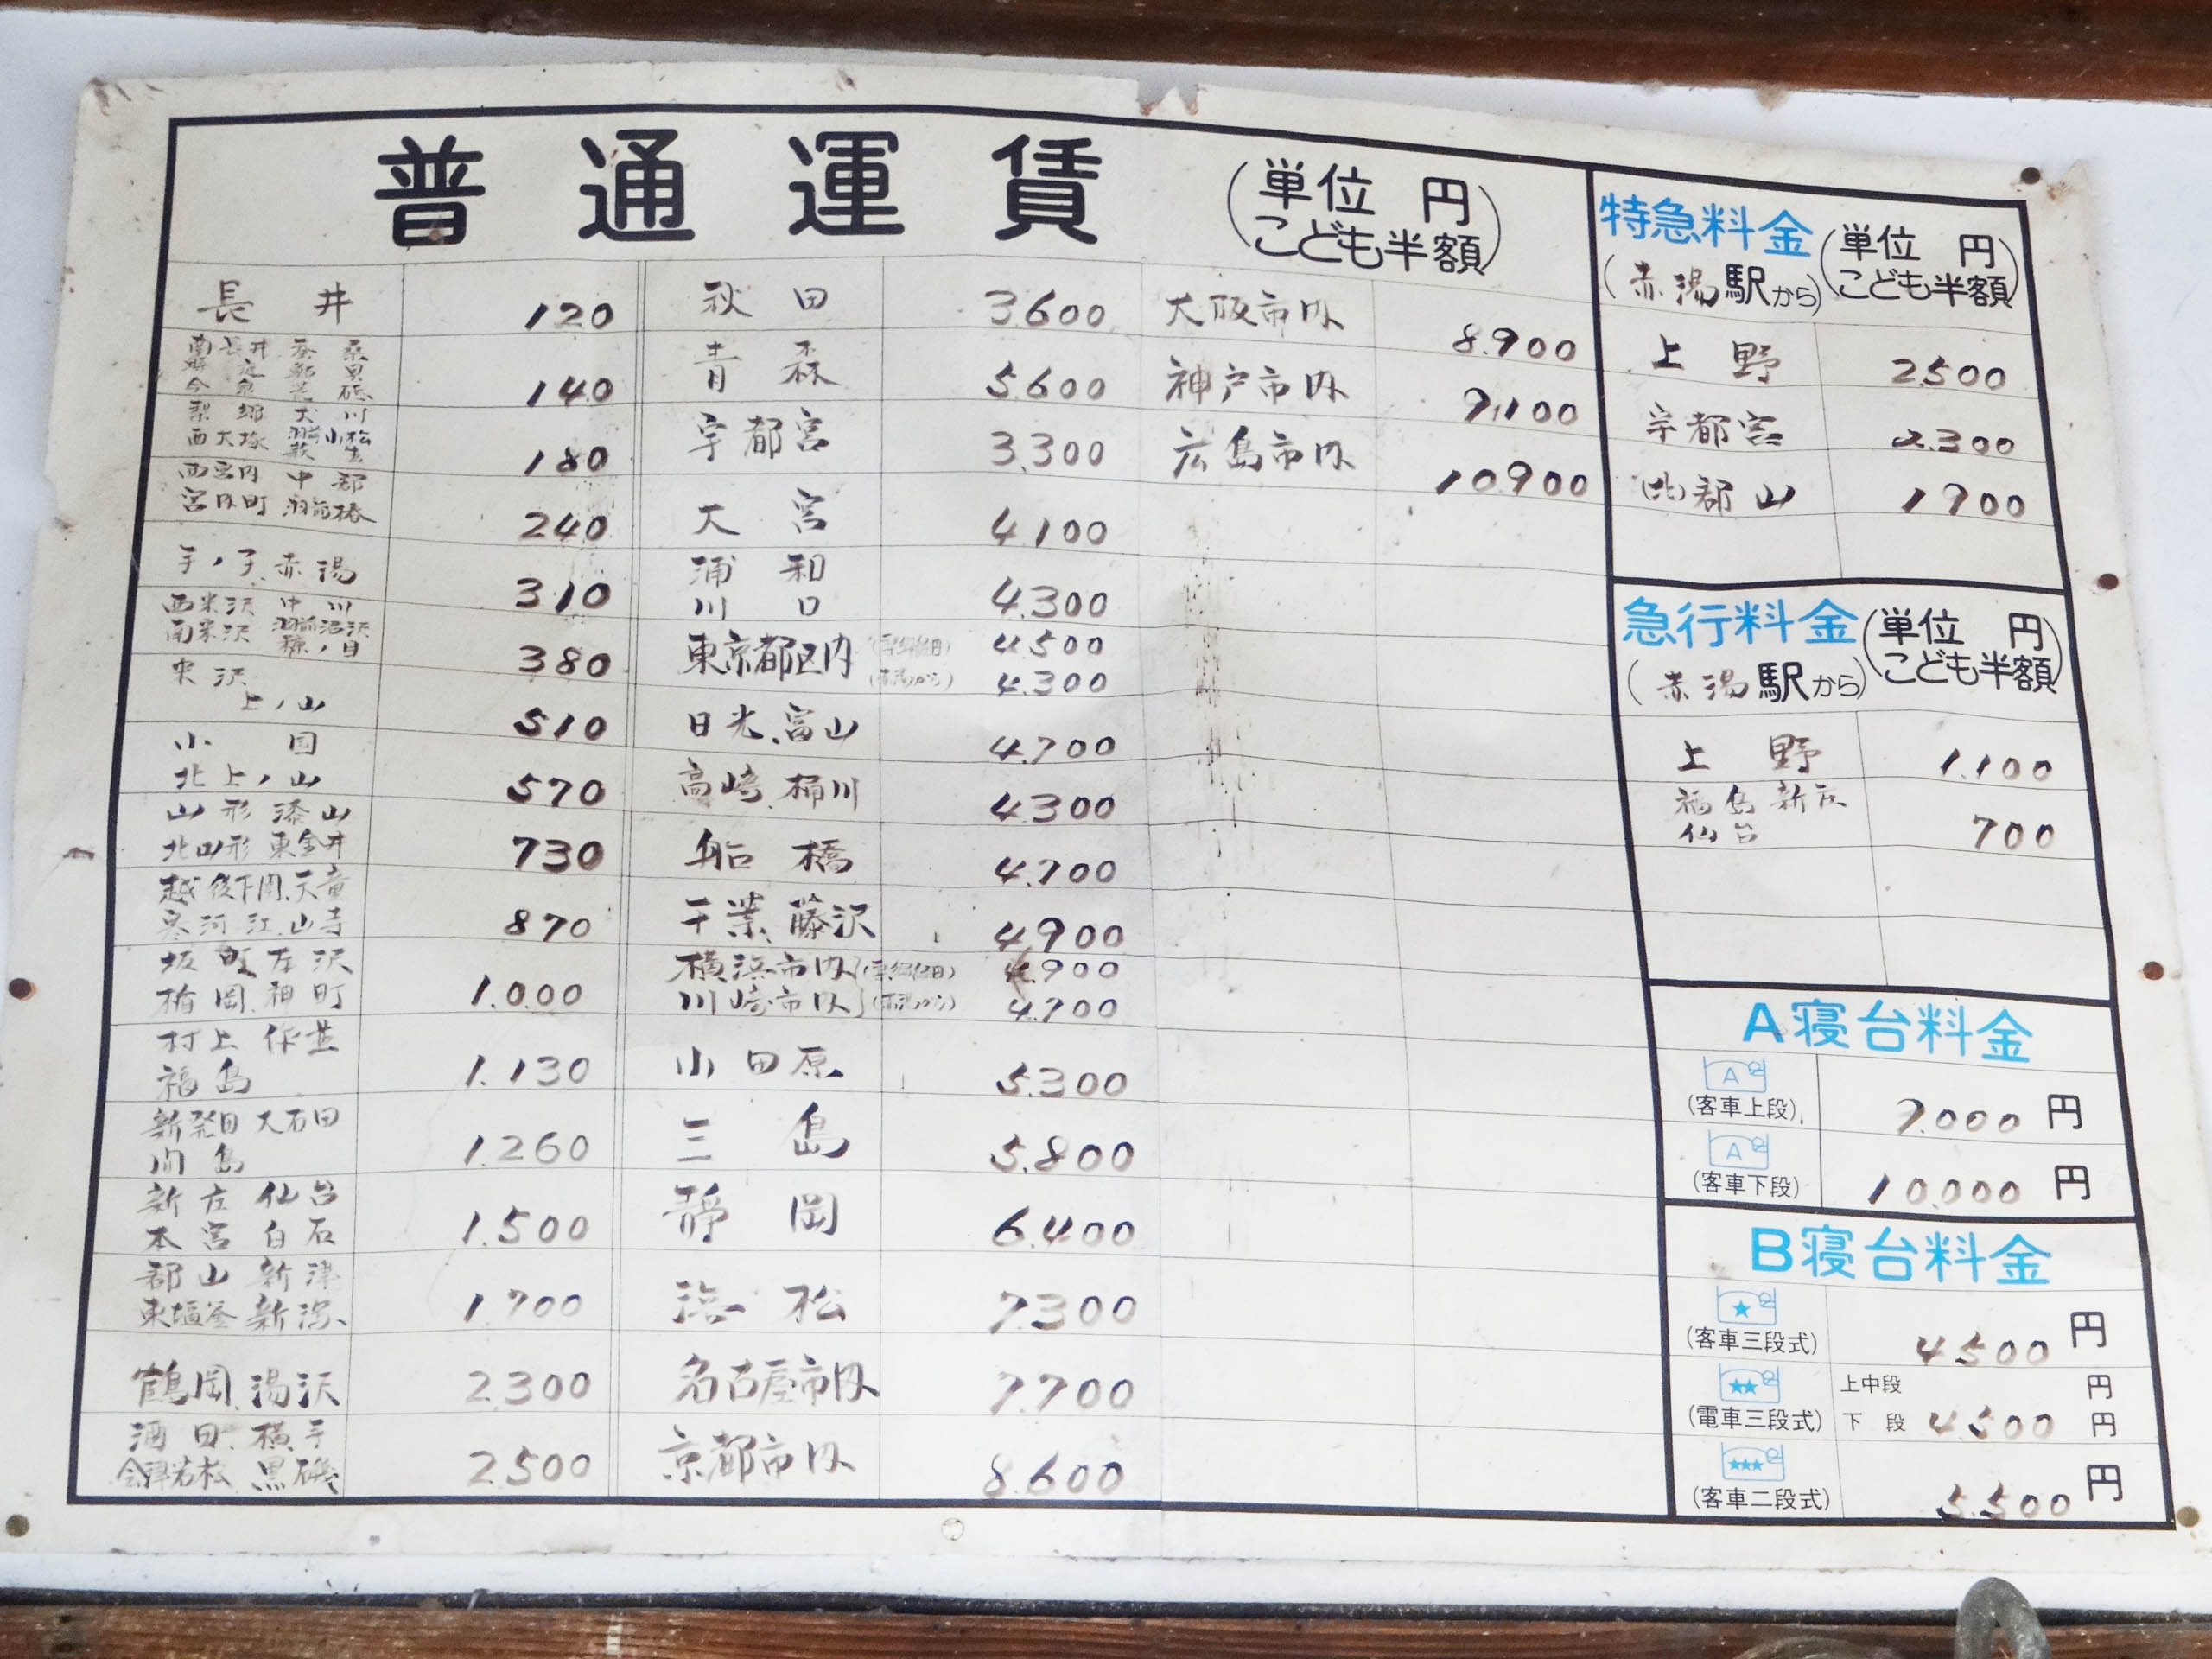 普通運賃
(単位 円
こども半額)
長井 120
南長井 蚕桑
鮎貝
今泉 荒砥
140
梨郷 犬川
西大塚 羽前小松
萩生
180
西宮内 中郡
宮内町 羽前椿
240
手ノ子.赤湯 310
西米沢 中川
南米沢 羽前沼沢
糠ノ目
380
米沢
上ノ山
510
小国
北上ノ山
570
山形 漆山
北山形 東金井
730
越後下関.天童
寒河江.山寺
870
坂町 左沢
楯岡.神町
1.000
村上
福島
1.130
新発田 大石田
間島
1.260
新庄 仙台
本宮 白石
1.500
郡山 新津
東塩釜 新潟
1.700
鶴岡.湯沢 2.300
酒田.横手
会津若松 黒磯
2.500
秋田 3.600
青森 5.600
宇都宮 3.300
大宮 4.100
浦和
川口
4.300
東京都区内 4.500
(赤湯から) 4.300
日光.富山 4.700
高崎.桶川 4.300
船橋 4.700
千葉.藤沢 4.900
横浜市内 4.900
川崎市内 (赤湯から) 4.700
小田原 5.300
三島 5.800
静岡 6.400
浜松 7.300
名古屋市内 7.700
京都市内 8.600
大阪市内 8.900
神戸市内 9.100
広島市内 10.900
特急料金 (単位 円
こども半額)
(赤湯駅から)
上野 2.500
宇都宮 2.300
郡山 1.900
急行料金 (単位 円
こども半額)
(赤湯駅から)
上野 1.100
福島 新庄
仙台
700
A寝台料金
A
(客車上段) 9.000円
A
(客車下段) 10.000円
B寝台料金
★
(客車三段式) 4.500円
★★
(電車三段式)
上中段 円
下段 4.500円
★★★
(客車二段式) 5.500円